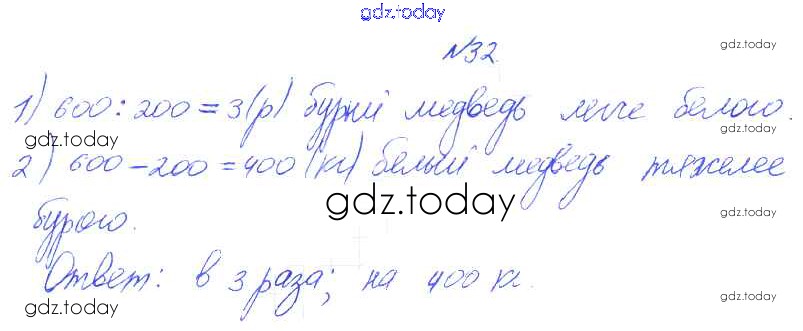 gdz.today
№32.
gdz.today
1) 600:200=3(р) бурый медведь легче белого.
gdz.today
gdz.today
2) 600-200=400 (кг) белый медведь тяжелее
gdz.today
gdz.today
бурого.
Ответ: в 3 раза; на 400 кг.
gdz.today
gdz.today